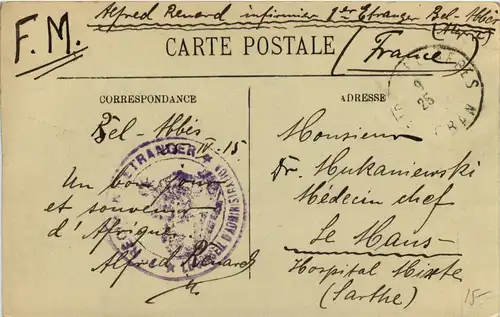 Alfred Renard infirmier 1er Etranger Bel-Abbès
F.M.
(Algérie)
CARTE POSTALE
(France)
CORRESPONDANCE
ADRESSE
Bel-Abbès
IV-15
Un bon
et souvenir
d'Afrique.
Alfred Renard
ETRANGER
Monsieur
Dr. Mukaniewski
Médecin chef
Le Mans
Hospital Mixte
(Sarthe)
15-